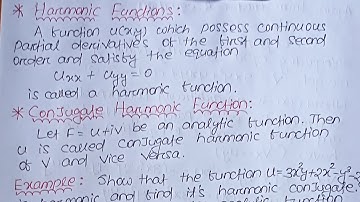 * Harmonic Functions:
A function u(x,y) which possess continuous
partial derivatives of the first and second
order and satisfy the equation
uxx + uyy = 0
is called a harmonic function.
* Conjugate Harmonic Function:
Let F = u+iv be an analytic function. Then
u is called conjugate harmonic function
of V and vice versa.
Example: Show that the function u = 3x²y+2x²-y³-2
harmonic and find it's harmonic conjugate.
function